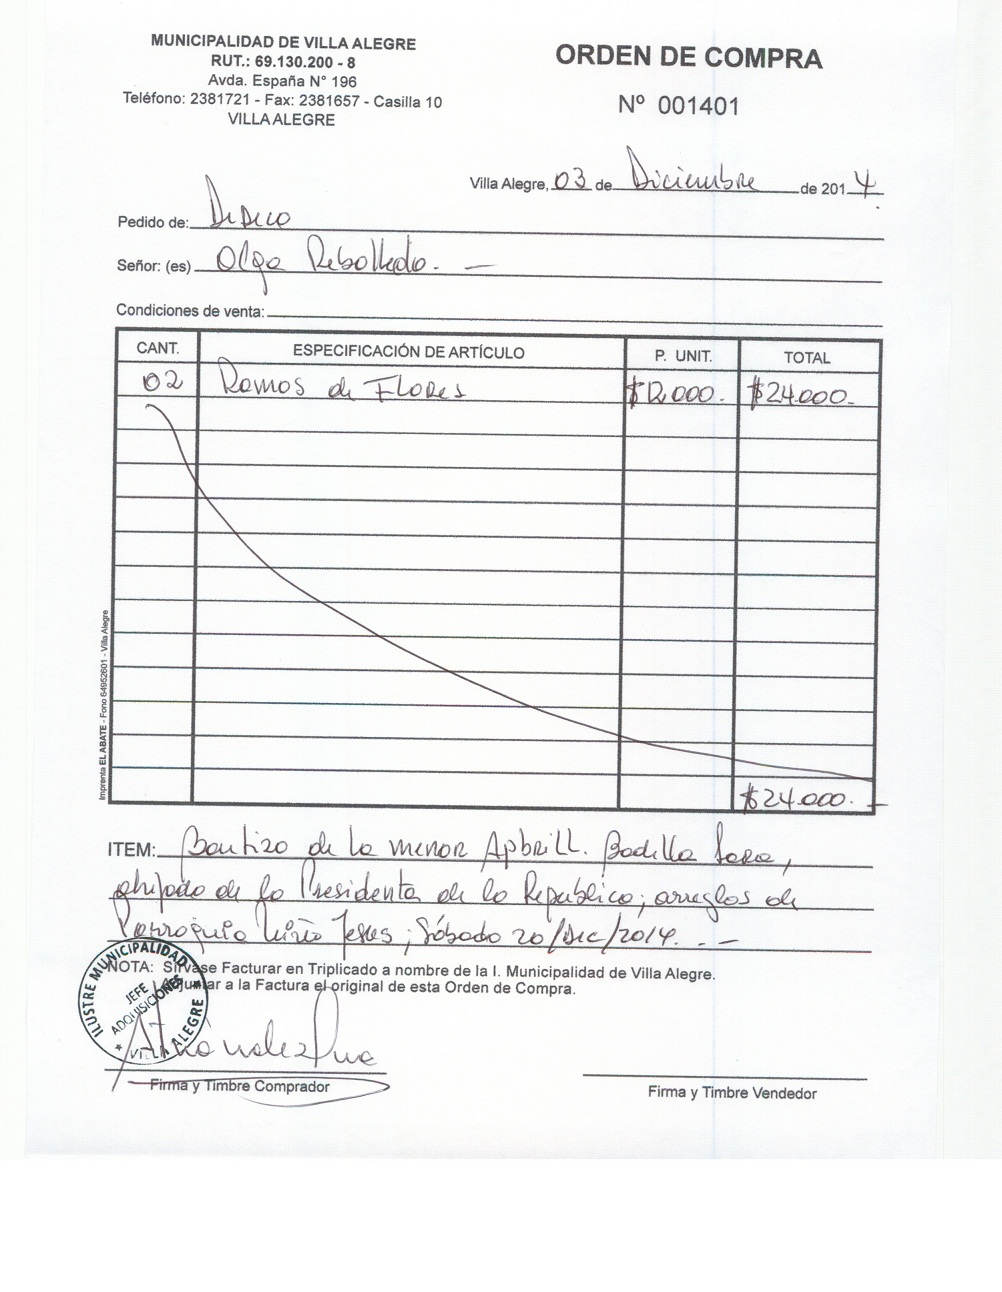 MUNICIPALIDAD DE VILLA ALEGRE
RUT.: 69.130.200 - 8
Avda. España N° 196
Teléfono: 2381721 - Fax: 2381657 - Casilla 10
VILLA ALEGRE
ORDEN DE COMPRA
Nº 001401
Villa Alegre, 03 de Diciembre de 2014.
Pedido de: Dideco
Señor: (es) Olga Rebolledo. —
Condiciones de venta:
CANT. ESPECIFICACIÓN DE ARTÍCULO P. UNIT. TOTAL
02 Ramos de Flores $12.000.- $24.000.-
$24.000.-
Imprenta EL ABATE - Fono 64952601 - Villa Alegre
ITEM: Bautizo de la menor Apbrill. Badilla
ahijada de la Presidenta de la República; arreglos de
Parroquia Niño Jesus; Sábado 20/Dic/2014. . —
NOTA: Sírvase Facturar en Triplicado a nombre de la I. Municipalidad de Villa Alegre.
Adjuntar a la Factura el original de esta Orden de Compra.
ILUSTRE MUNICIPALIDAD
JEFE
ADQUISICIONES
* VILLA ALEGRE
Firma y Timbre Comprador
Firma y Timbre Vendedor